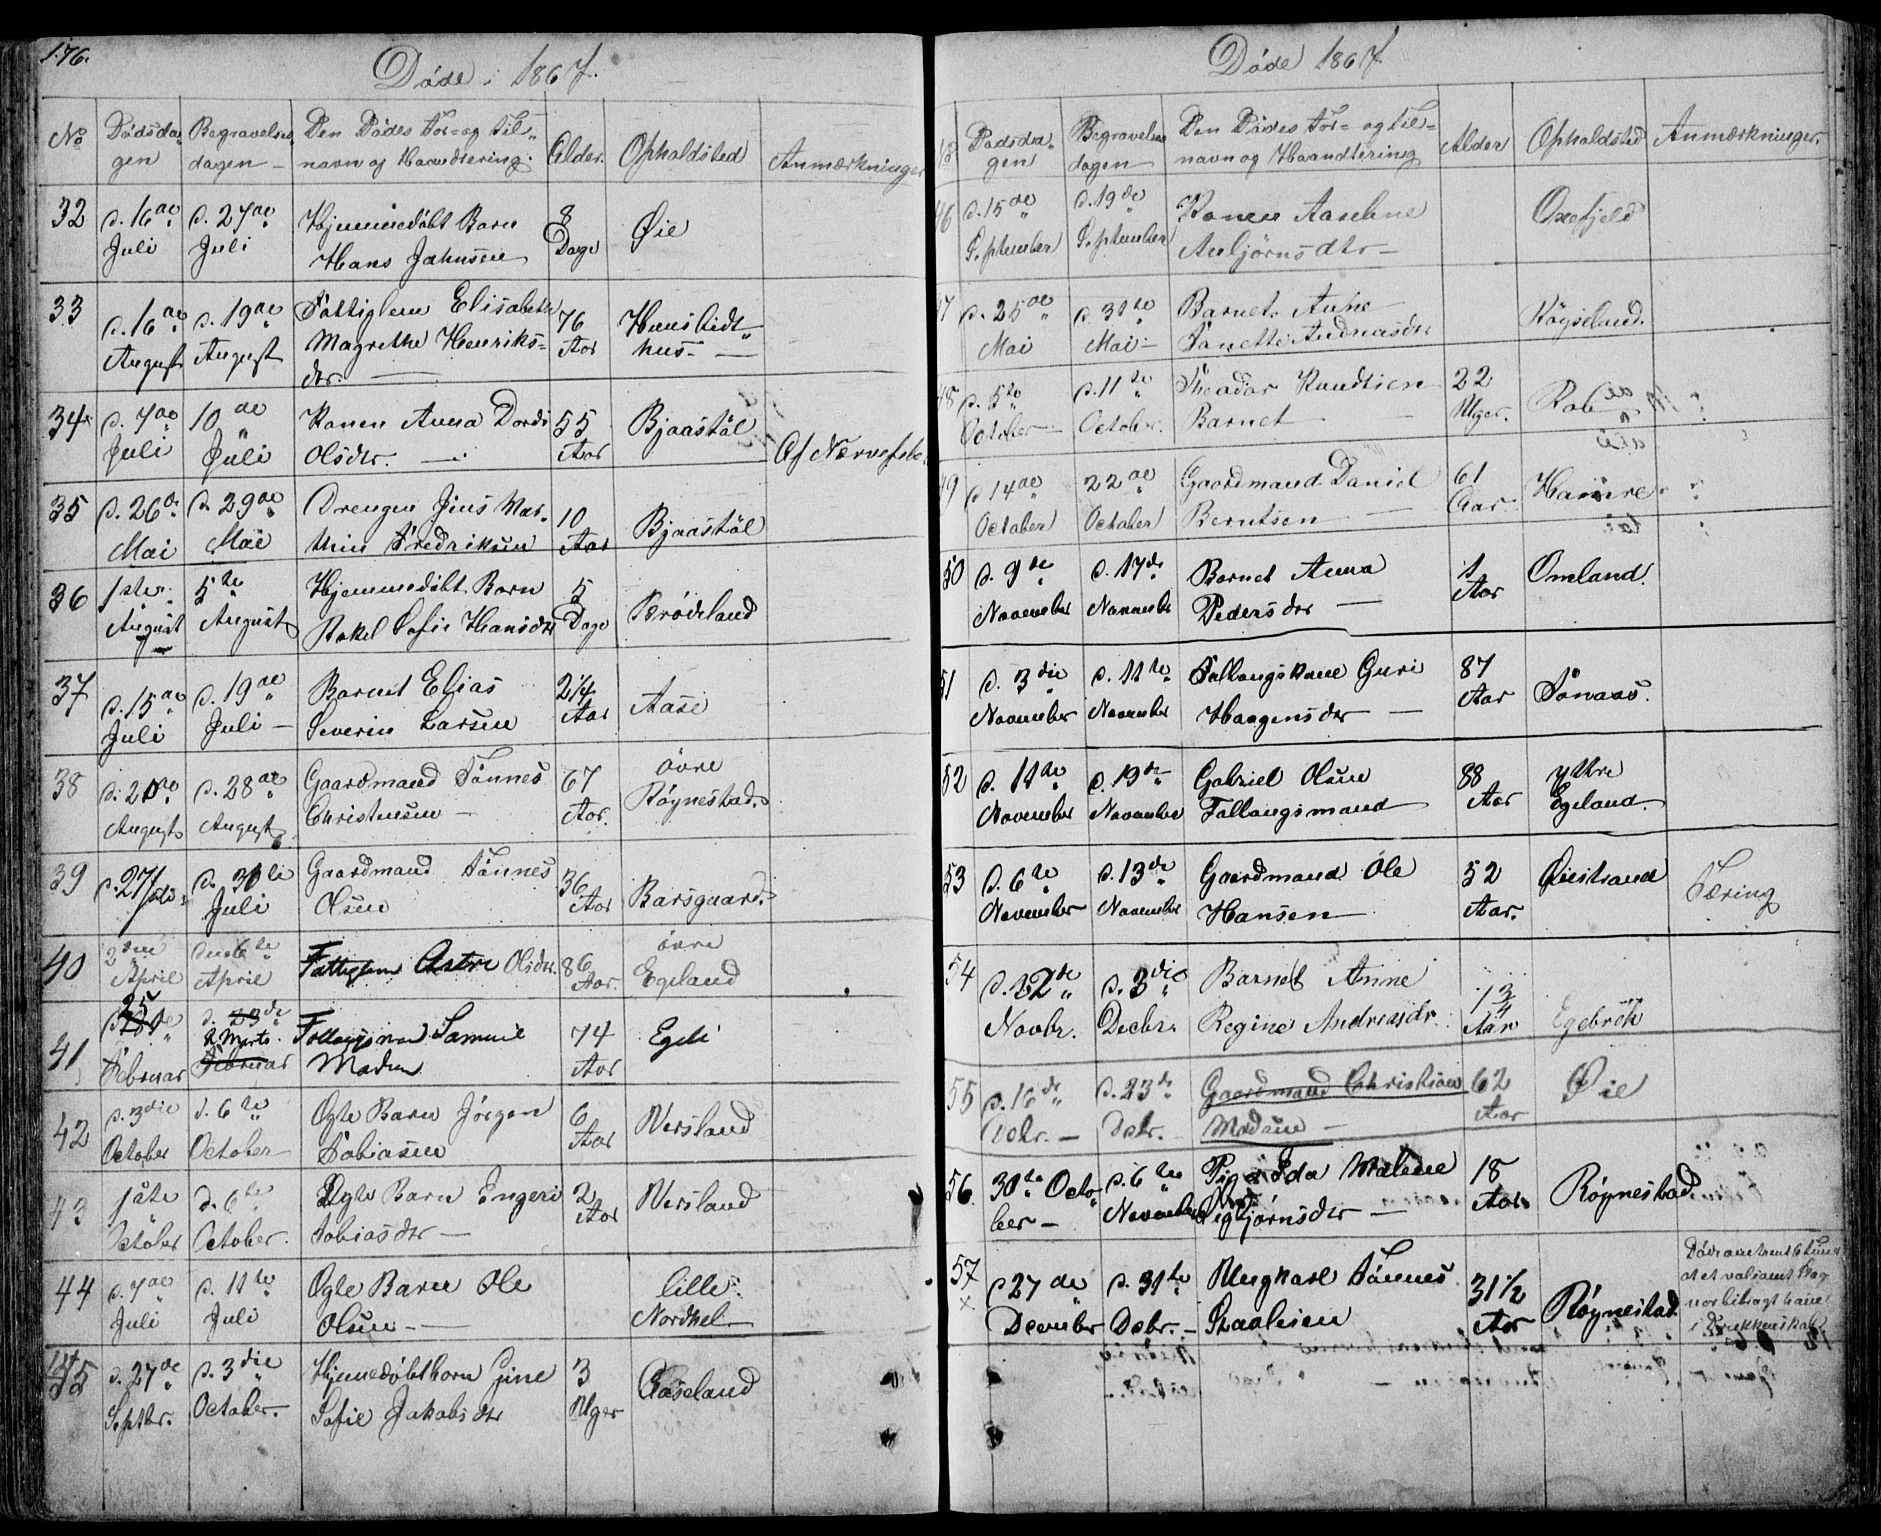 176.
Døde i 1867.
No
Dødsda-
gen
Begravelses
dagen
Den Dødes For- og Til-
navn og Haandtering.
Alder.
Opholdsted
Anmærkninger
32
d. 16de
Juli
d. 27de
Juli
Hjemmedøbt Barn
Hans Jahnsen
8
Dage
Øie
33
d. 16de
August
d. 19de
August
Fattiglem Elisabeth
Magrethe Henriks-
dtr.
76
Aar
hus
34
d. 7de
Juli
10de
Juli
Konen Anna Dordi
Olsdtr.
55
Aar
Bjaastöl
Af Nervefeber
35
d. 26de
Mai
d. 29de
Mai
Drengen Jens Mar-
thin Fredriksen
10
Aar
Bjaastöl
36
1ste
August
5te
August
Hjemmedøbt Barn
Rakel Sofie Hansdtr
5
Dage
Brødeland
37
d. 15de
Juli
d. 19de
Juli
Barnet Elias
Severin Larsen
2 1/4
Aar
Aase
38
d. 20de
August
d. 28de
August
Gaardmand Tønnes
Christensen
67
Aar.
øvre
Røynestad.
39
d. 27/
Juli
d. 30
Juli
Gaardmand Tønnes
Olsen
36
Aar
Barsgaard.
40
2den
April
den 6te
April
Fattiglem Astri Olsdtr.
86
Aar.
øvre
Egeland
41
25
Februar
d. 23de
2 Marts
Februar
Follaugsman Samuel
Madsen
74
Aar
Egeli
42
d. 3die
October
d. 6te
October
Ogte Barn Jørgen
Tobiasen
6
Aar
Versland
43
1ste
October
d. 6te
October.
Ogte Barn Engeri
Tobiasdtr
2
Aar
Versland
44
d. 7de
Juli
d. 11te
Juli
Ogte Barn Ole
Olsen
lille
Nordhel
45
d. 27de
Septbr.
d. 3die
October.
Hjemmedøbtbarn Gine
Sofie Jakobsdtr
3
Uger
Aaseland
Døde 1867
Dødsda-
gen
Begravelses
dagen
Den Dødes For- og Til-
navn og Haandtering
Alder
Opholdsted
Anmærkninger.
46
d. 15de
September
d. 19de
September
Konen Aaseline
Anbjørnsdtr
Oxefjeld
47
d. 25de
Mai
d. 31te
Mai
Barnet Anne
Tanette Andreasdtr
Røyseland.
48
d. 5te
October
d. 11te
October.
Theodor Knudtsen
Barnet
22
Uger.
49
d 14de
October
22de
October
Gaardmand Daniel
Berntsen
61
Aar
Hamre
50
d. 9de
November
d. 17de
November
Barnet Anna
Pedersdtr
1
Aar
Omland.
51
d. 3die
November
d. 11te
November
Follaugskone Guri
Haagensdtr
87
Aar
Tønaas.
52
d. 11te
November
d. 19de
November
Gabriel Olsen
Follaugsmand
88
Aar
ytre
Egeland.
53
d. 6te
November
d. 13de
November
Gaardmand Ole
Hansen
52
Aar.
Øiestrand
Tæring
54
d. 22de
Novbr.
d. 3die
Decbr.
Barnet Anne
Regine Andreasdr.
1 3/4
Aar
Egebrök
55
d. 16de
Debr.
d. 23de
Debr.
Gaardmand Christian
Madsen
62
Aar
Øie
56
30te Octo-
ber
d. 6te
November
Pige Ida Malene
Sigbjørnsdtr
18
Aar.
Røynestad.
57
d 27de
December
d. 31te
Debr.
Ungkarl Tønnes
Staalesen
31 1/2
Aar
Røynestad